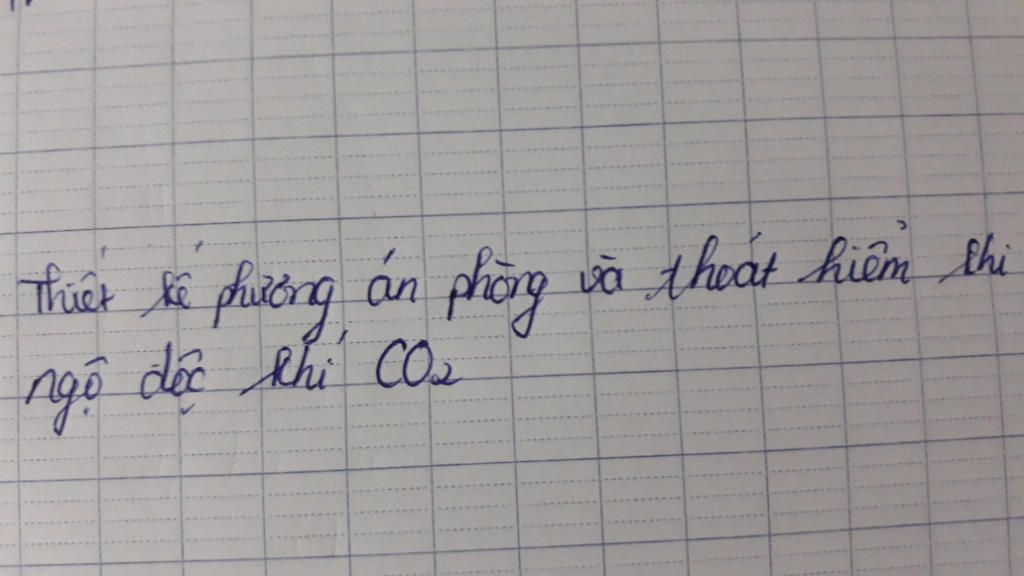 Thiết kế phương án phòng và thoát hiểm khi
ngộ độc khí CO₂